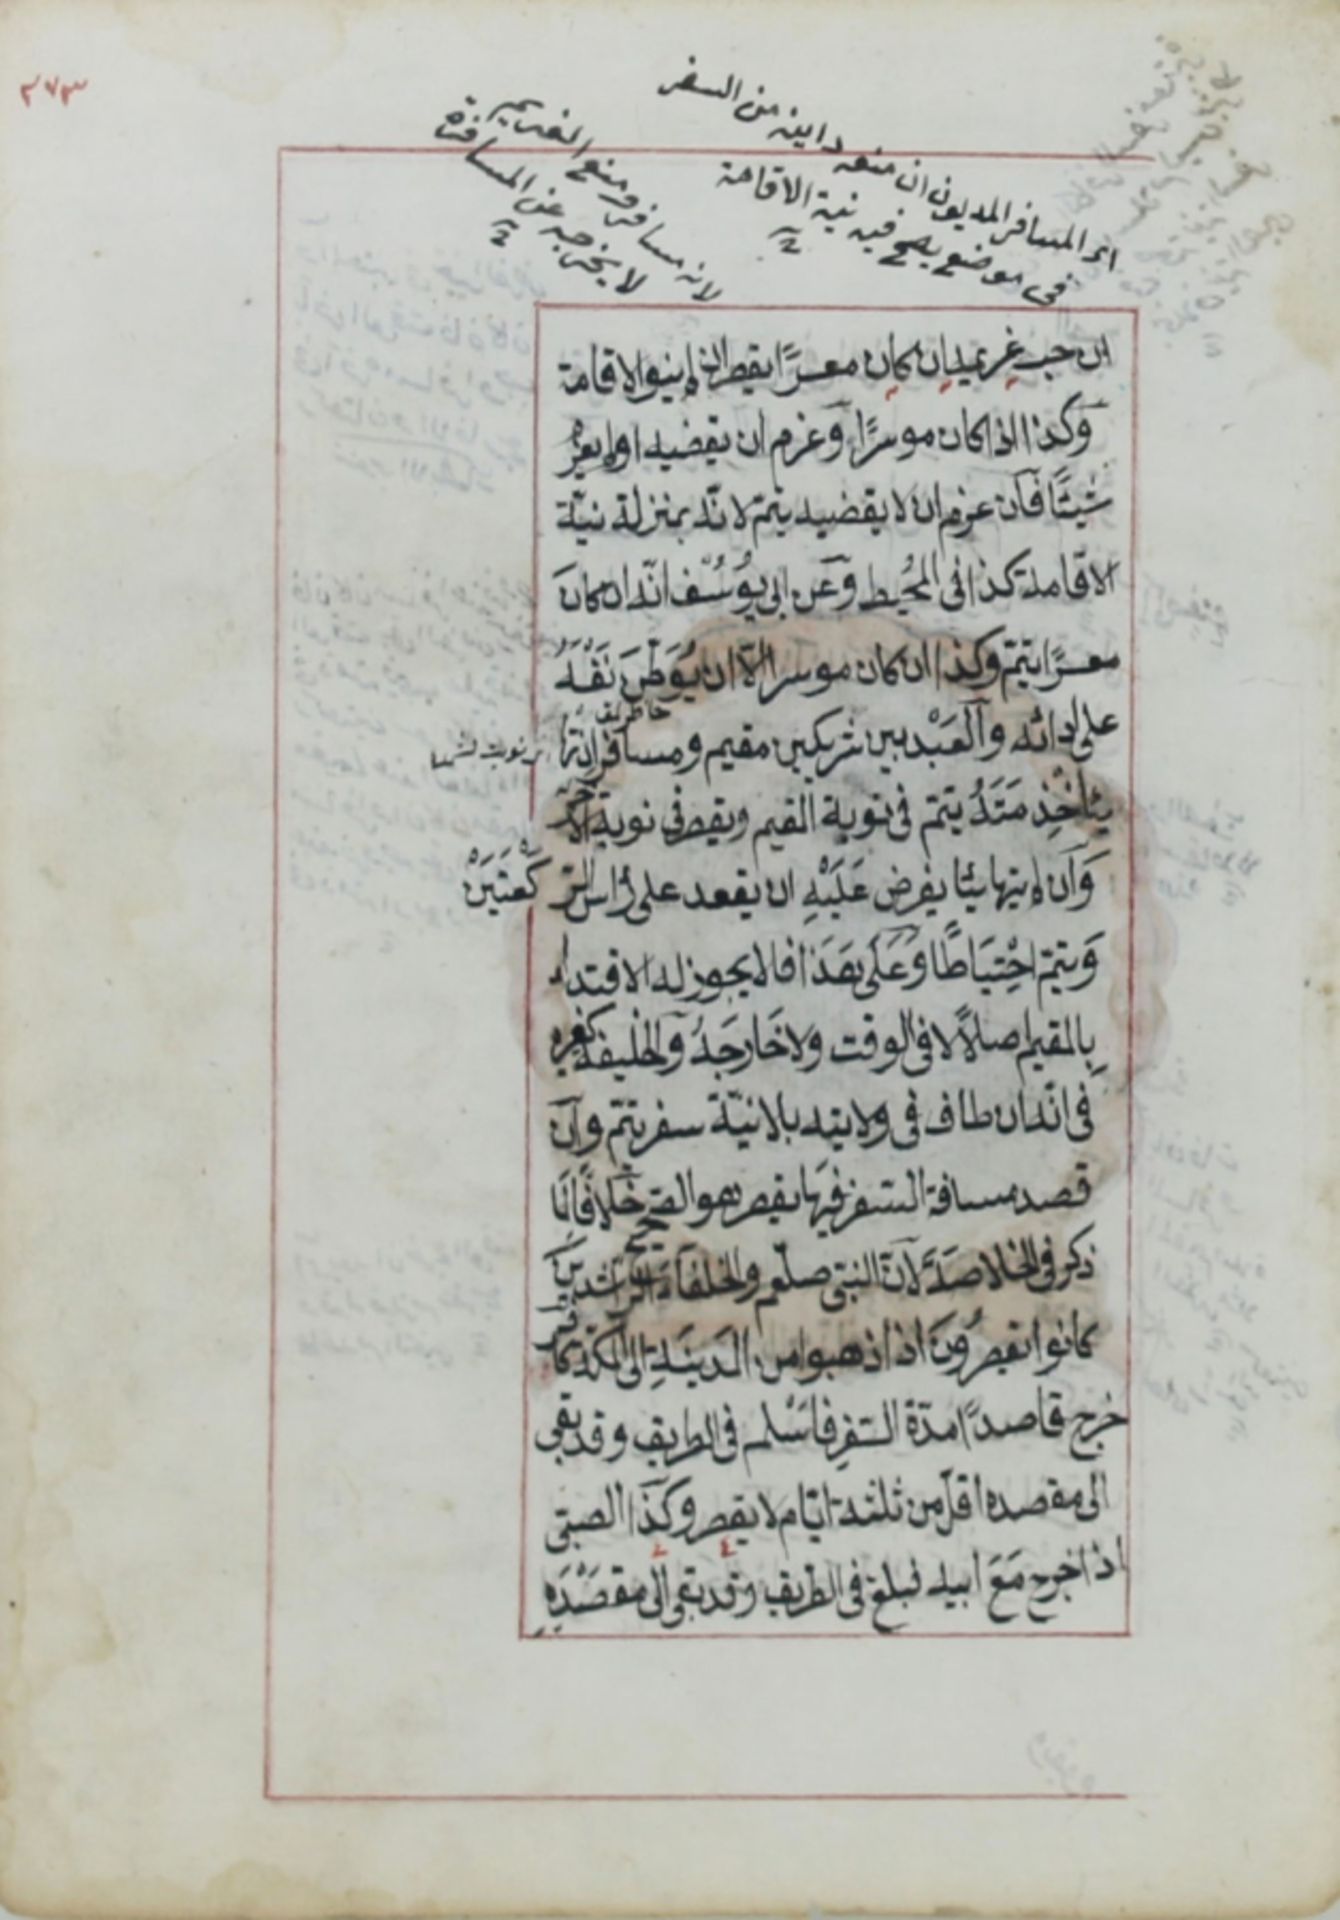 اى المسافر المديون ان منعه داينه من السفر
فى موضع يصح فيه نية الاقامة
لانه مسافر ومنع الغريم
لا يخرجه عن المسافرة
٣٧٣
ان حبسه غريمه ان كان معسرًا يقصر ان لم ينو الاقامة
وكذا ان كان موسرًا وعزم ان يقضيه او لم يعزم
شيئًا فان عزم ان لا يقضيه يتم لانّه بمنزلة نيّة
الاقامة كذا فى المحُيط وعن ابى يوُسُف انّه ان كان
معسرًا يتمّ وكذا ان كان موسرا الّا ان يُوَطّنَ نَفْسَهُ
على ادائه وآلعَبْد بين شريكين مقيم ومسافر ان
يتم فى نوبة المقيم ويقصر فى نوبة الآخر
وَآن لم يتهايئا يفرض عَلَيْهِ ان يقعد على رأس الركعَتَيْنْ
وَيتمّ احْتِيَاطًا وَعَلَى هَذا فلا يجوز له الاقتداء
بِالمقيم اصلاً لا فى الوقت ولا خَارجَهُ وآلخليفة كغيره
فى انّه ان طاف فى ولايته بلا نيّة سفر يتمّ وآن
قصد مسافة السّفر فيهَا يقصر هو الصّحيح خلافًا لمَا
ذكر فى الخلاصَة لآنّ النبىّ صلّعم والخلفآء الرّاشدين
كانوا يقصرُونَ اذا ذهبوا من المدينَةِ الى مكّة كافر
خرج قاصدًا مدّة السّفرِ فاَسْلم فى الطريق وقد بقى
الى مقصده اقلّ من ثلثة ايّام لا يقصر وكذا الصّبىّ
اذا خرج مَعَ ابيه فبلغ فى الطّريق وقد بقى الى مقصَدِهِ